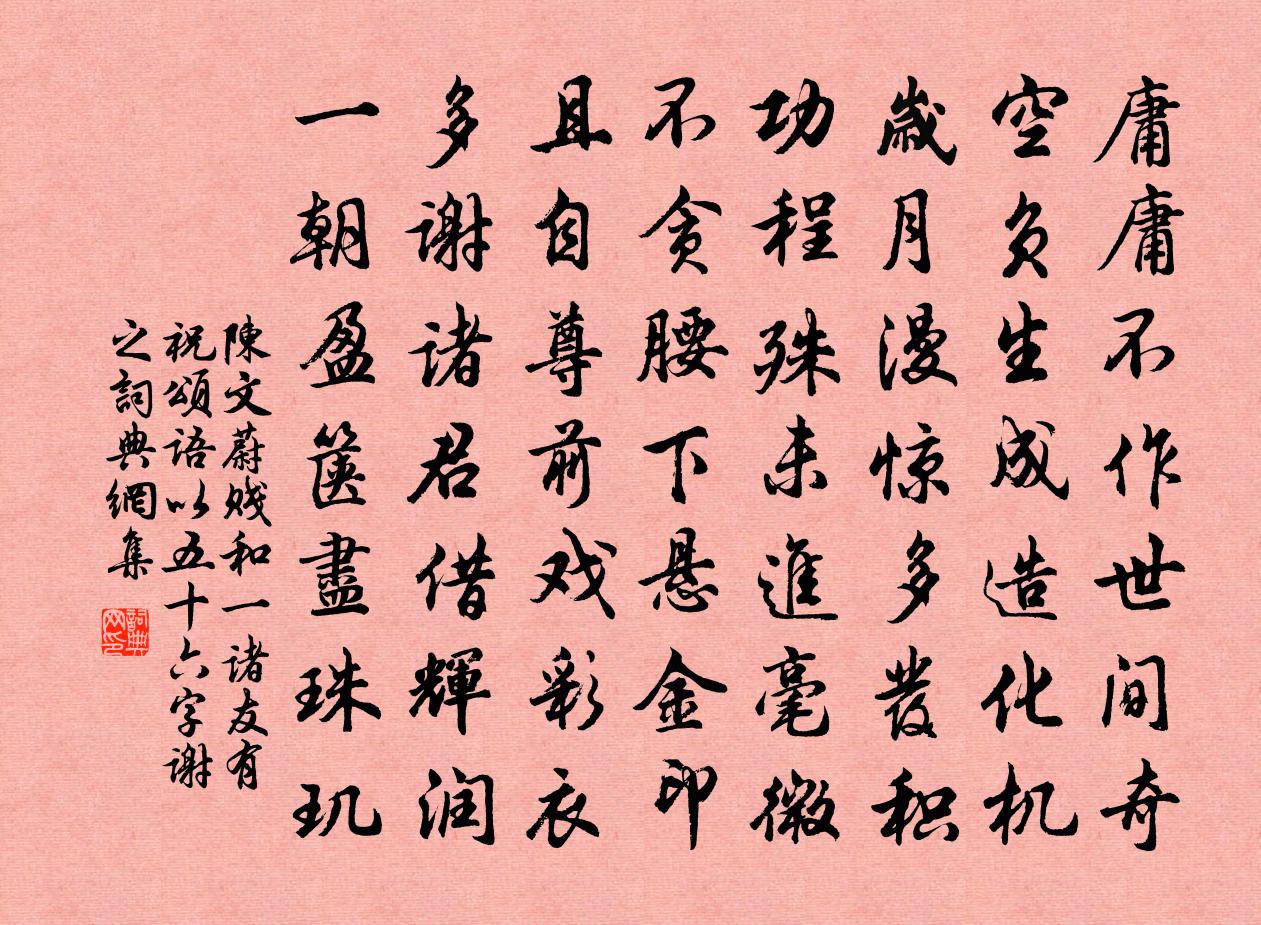 庸庸不作世间奇
空负生成造化机
歲月漫惊多發积
功程殊未進毫微
不贪腰下悬金印
且自尊前戏彩衣
多谢诸君借輝润
一朝盈箧盡珠玑
陳文蔚贱和一诸友有
祝頌语以五十六字谢
之詞典網集